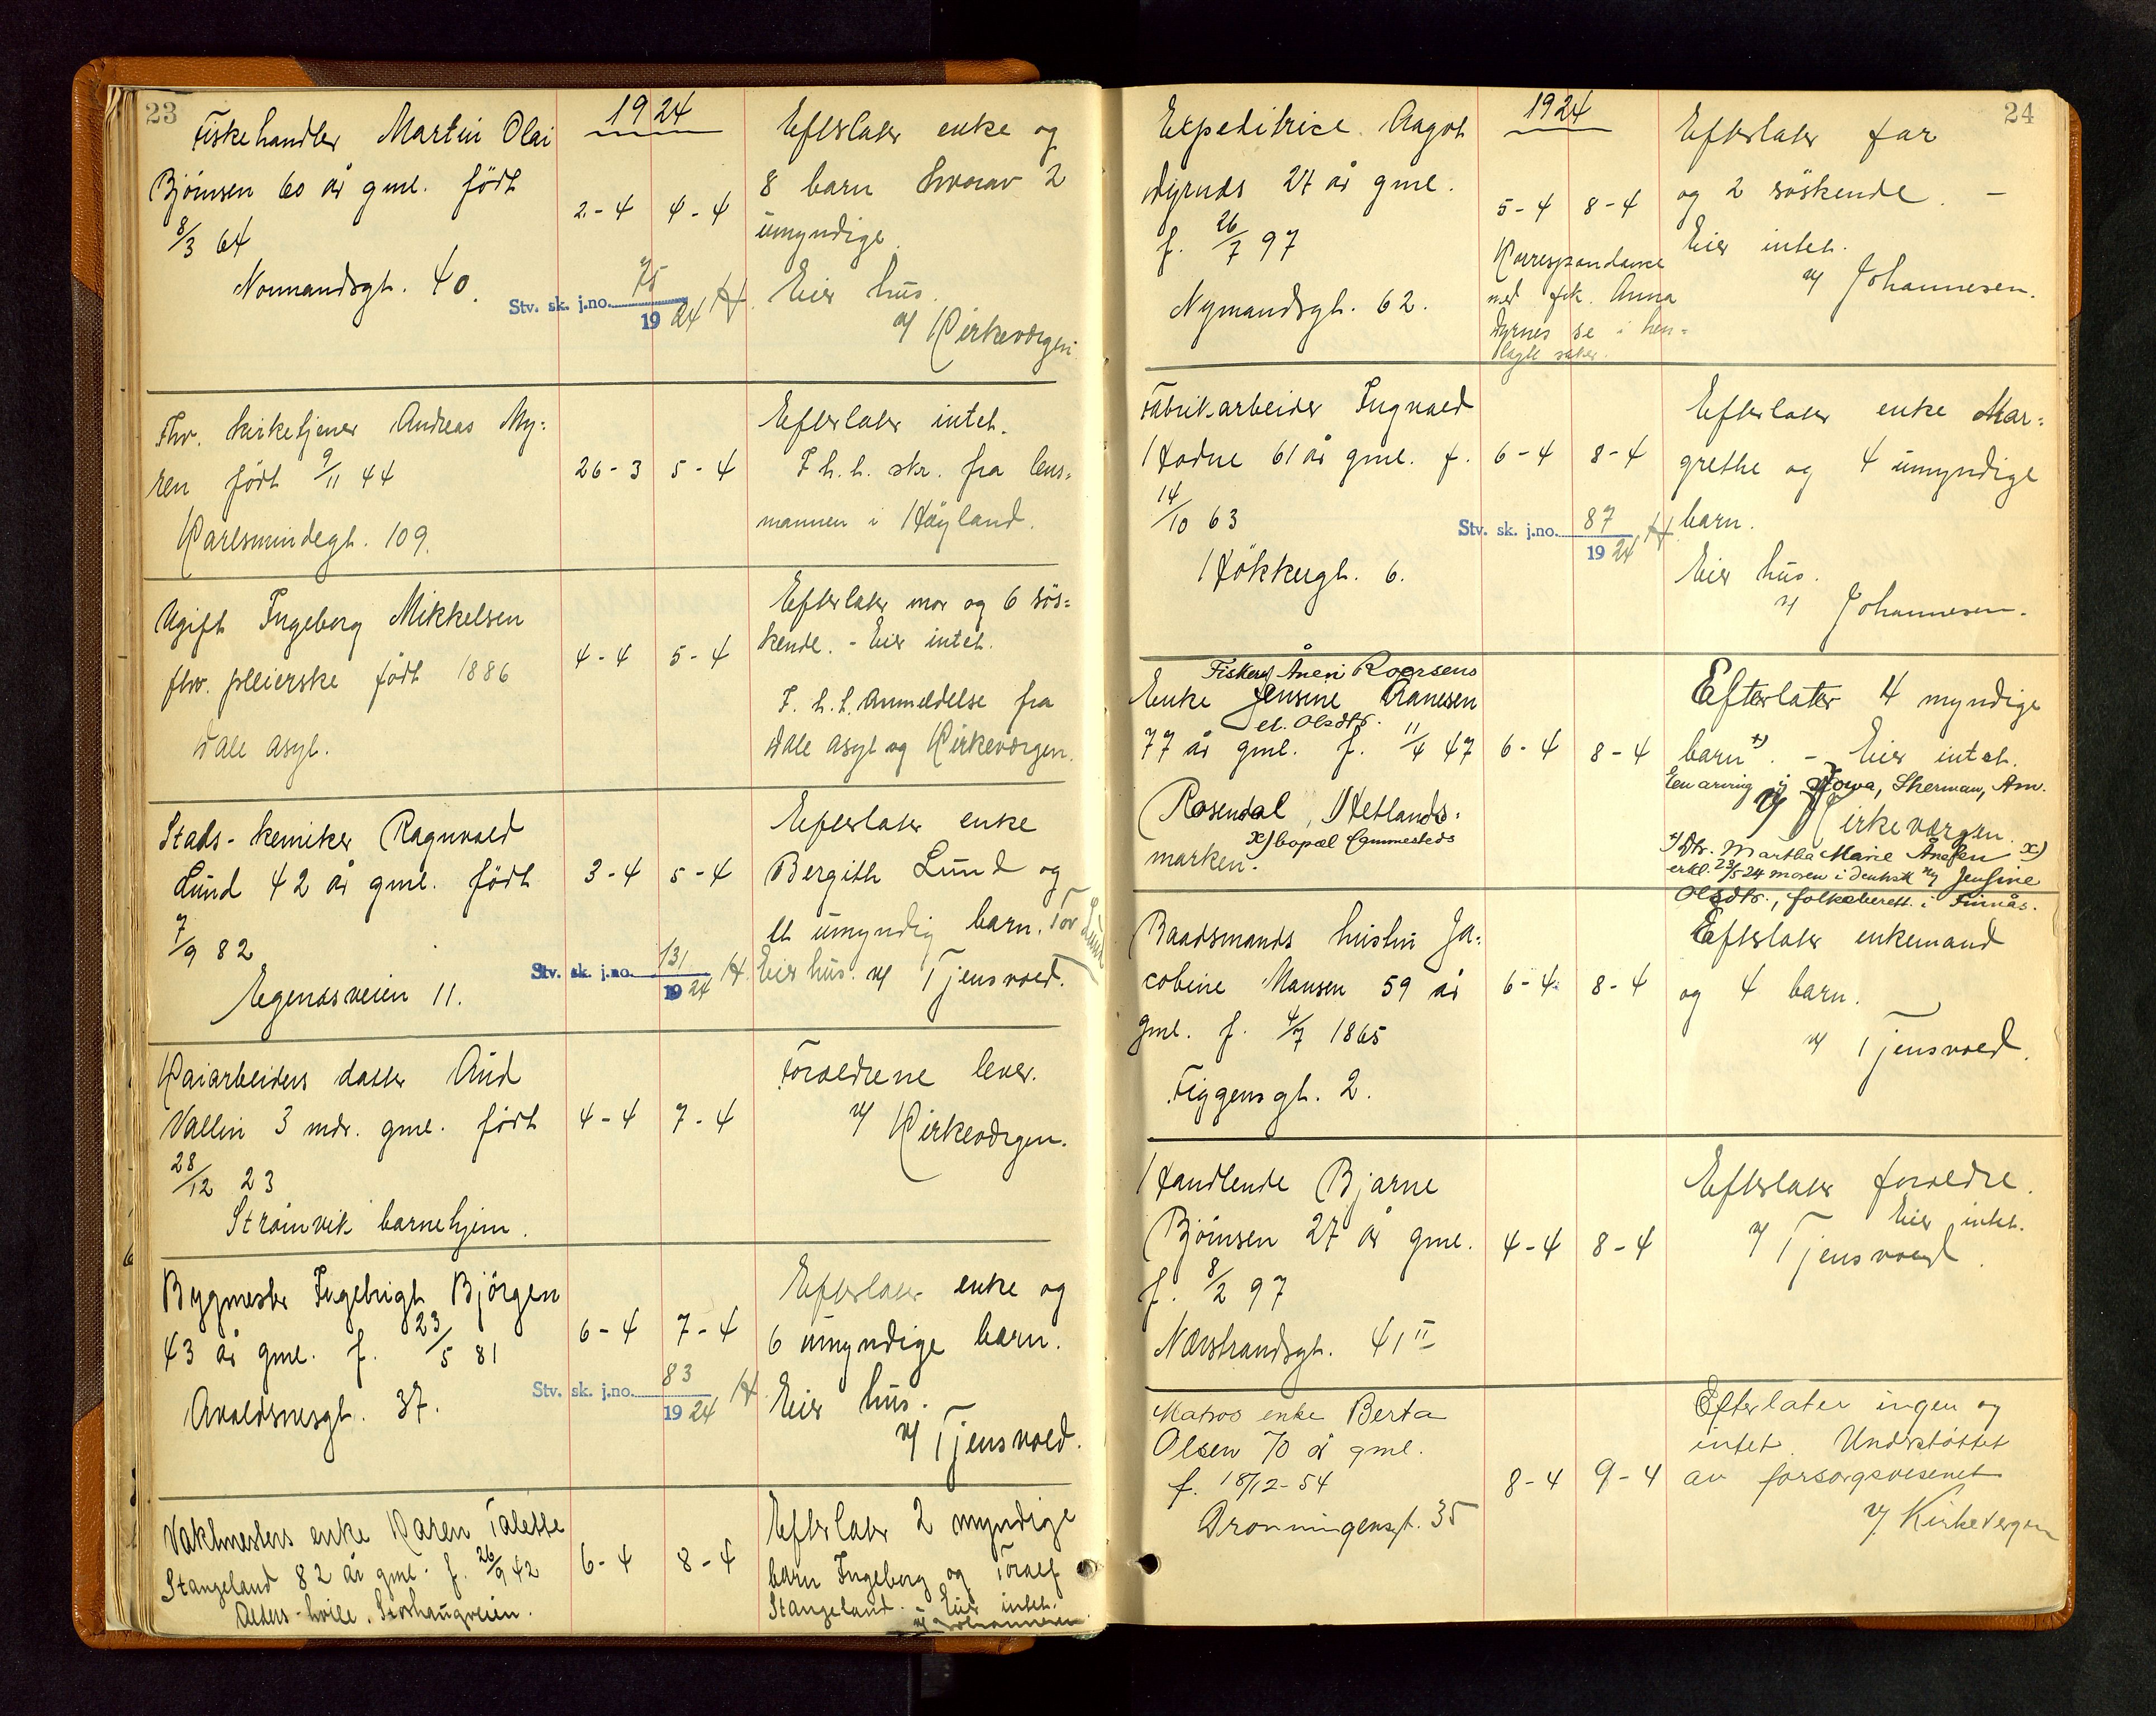 23
1924
Fiskehandler Martin Olai
Bjørnsen 60 år gml. født
8/3 64
Normandsgt. 40.
2-4 4-4
Stv. sk. j.no. 75
19 24 H.
Efterlater enke og
8 barn hvorav 2
umyndige.
Eier hus.
v/ Kirkevergen
Fhv. kirketjener Andreas My=
ren født 9/11 44
Karlsmindegt. 109.
26-3 5-4
Efterlater intet.
I h. h. skr. fra lens=
mannen i Høyland.
Ugift Ingeborg Mikkelsen
fhv. pleierske født 1886
Dale asyl.
4-4 5-4
Efterlater mor og 6 søs=
kende. - Eier intet.
I. h. h. anmeldelse fra
Dale asyl og Kirkevergen.
Stads-kemiker Ragnvald
Lund 42 år gml. født
7/9 82
Egenæsveien 11.
3-4 5-4
Stv. sk. j.no. 131
19 24 H.
Efterlater enke
Bergith Lund og
et umyndig barn. Tor Lund
Eier hus. v/ Tjensvold.
Kaiarbeiders datter Aud
Vallin 3 mdr. gml. født
28/12 23
Strømvik barnehjem.
4-4 7-4
Forældrene lever.
v/ Kirkevergen.
Bygmester Ingebrigt Bjørgen
43 år gml. f. 23/5 81
Avaldsnesgt. 37.
6-4 7-4
Stv. sk. j.no. 83
19 24 H.
Efterlater enke og
6 umyndige barn.
Eier hus.
v/ Tjensvold.
Vaktmesters enke Karen Talette
Stangeland 82 år gml. f. 26/9 42
Alders-hvile. Storhaugveien.
6-4 8-4
Efterlater 2 myndige
barn Ingeborg og Toralf
Stangeland. - Eier intet.
v/ Johannesen.
24
1924
Expeditrice Aagot
Dyrnes 27 år gml.
f. 26/7 97
Nymandsgt. 62.
5-4 8-4
Korrespondance
med frk. Anna
Dyrnes se i hen=
lagte saker.
Efterlater far
og 2 søskende. -
Eier intet.
v/ Johannesen.
Fabrikarbeider Ingvald
Hodne 61 år gml. f.
14/10 63
Høkkergt. 6.
6-4 8-4
Stv. sk. j.no. 87
19 24 H.
Efterlater enke Mar=
grethe og 4 umyndige
barn.
Eier hus.
v/ Johannesen.
Fisker Ånen Roersens
Enke Jensine Ranesen
el. Olsdtr.
77 år gml. f. 11/4 47
Rosendal, Hetlands=
marken. x) bopæl sammesteds
6-4 8-4
Efterlater 4 myndige
barn +). - Eier intet.
Een arving i Iowa, Sherman, Am.
v/ Kirkevergen. x)
+) Dtr. Martha Marie Ånesen
erkl. 23/5 24 moren i dentsk v/ Jensine
Olsdtr., folkeberett. i Finnås.
Baadsmands hustru Ja=
cobine Monsen 59 år
gml. f. 4/7 1865
Figgensgt. 2.
6-4 8-4
Efterlater enkemand
og 4 barn.
v/ Tjensvold.
Handlende Bjarne
Bjørnsen 27 år gml.
f. 8/2 97
Nærstrandsgt. 41 II
4-4 8-4
Efterlater forældre.
Eier intet.
v/ Tjensvold.
Matros enke Berta
Olsen 70 år gml.
f. 18/12-54
Dronningensgt. 35
8-4 9-4
Efterlater ingen og
intet. Understøttet
av forsorgsvesenet
v/ Kirkevergen